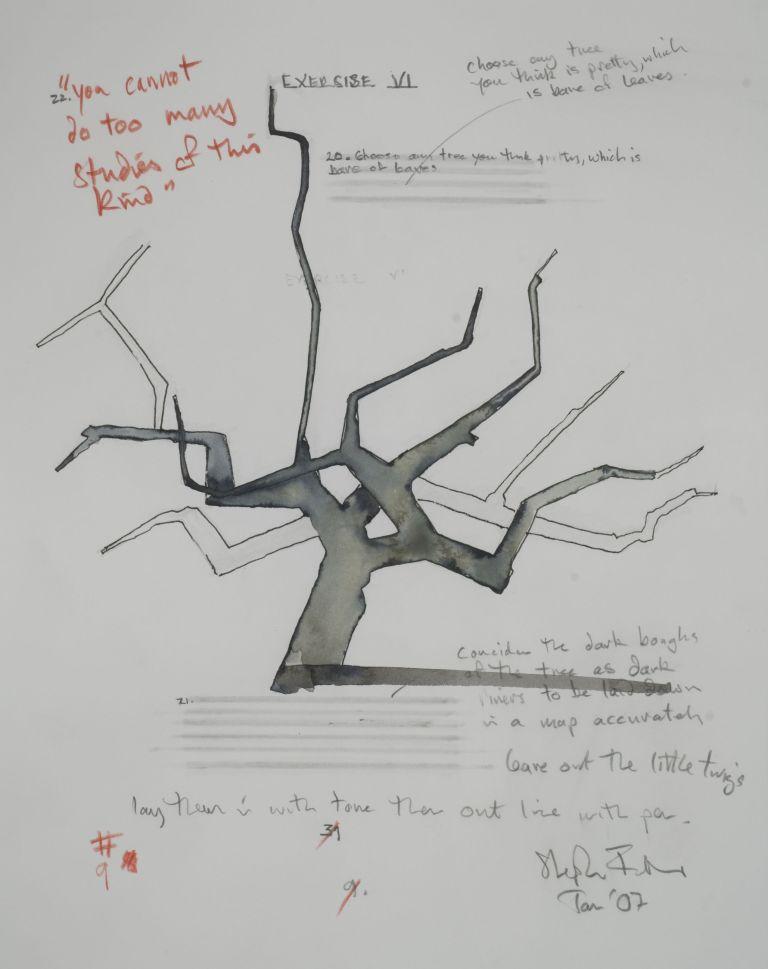 EXERSISE VI
choose any tree
you think is pretty, which
is bare of leaves.
22. "you cannot
do too many
studies of this
kind"
20. Choose any tree you think pretty, which is
bare of leaves
EXERSISE VI
Consider the dark boughs
of the tree as dark
rivers to be laid down
in a map accurately
21.
leave out the little twigs
lay them in with tone then out line with pen.
# 9
9.
Jan '07